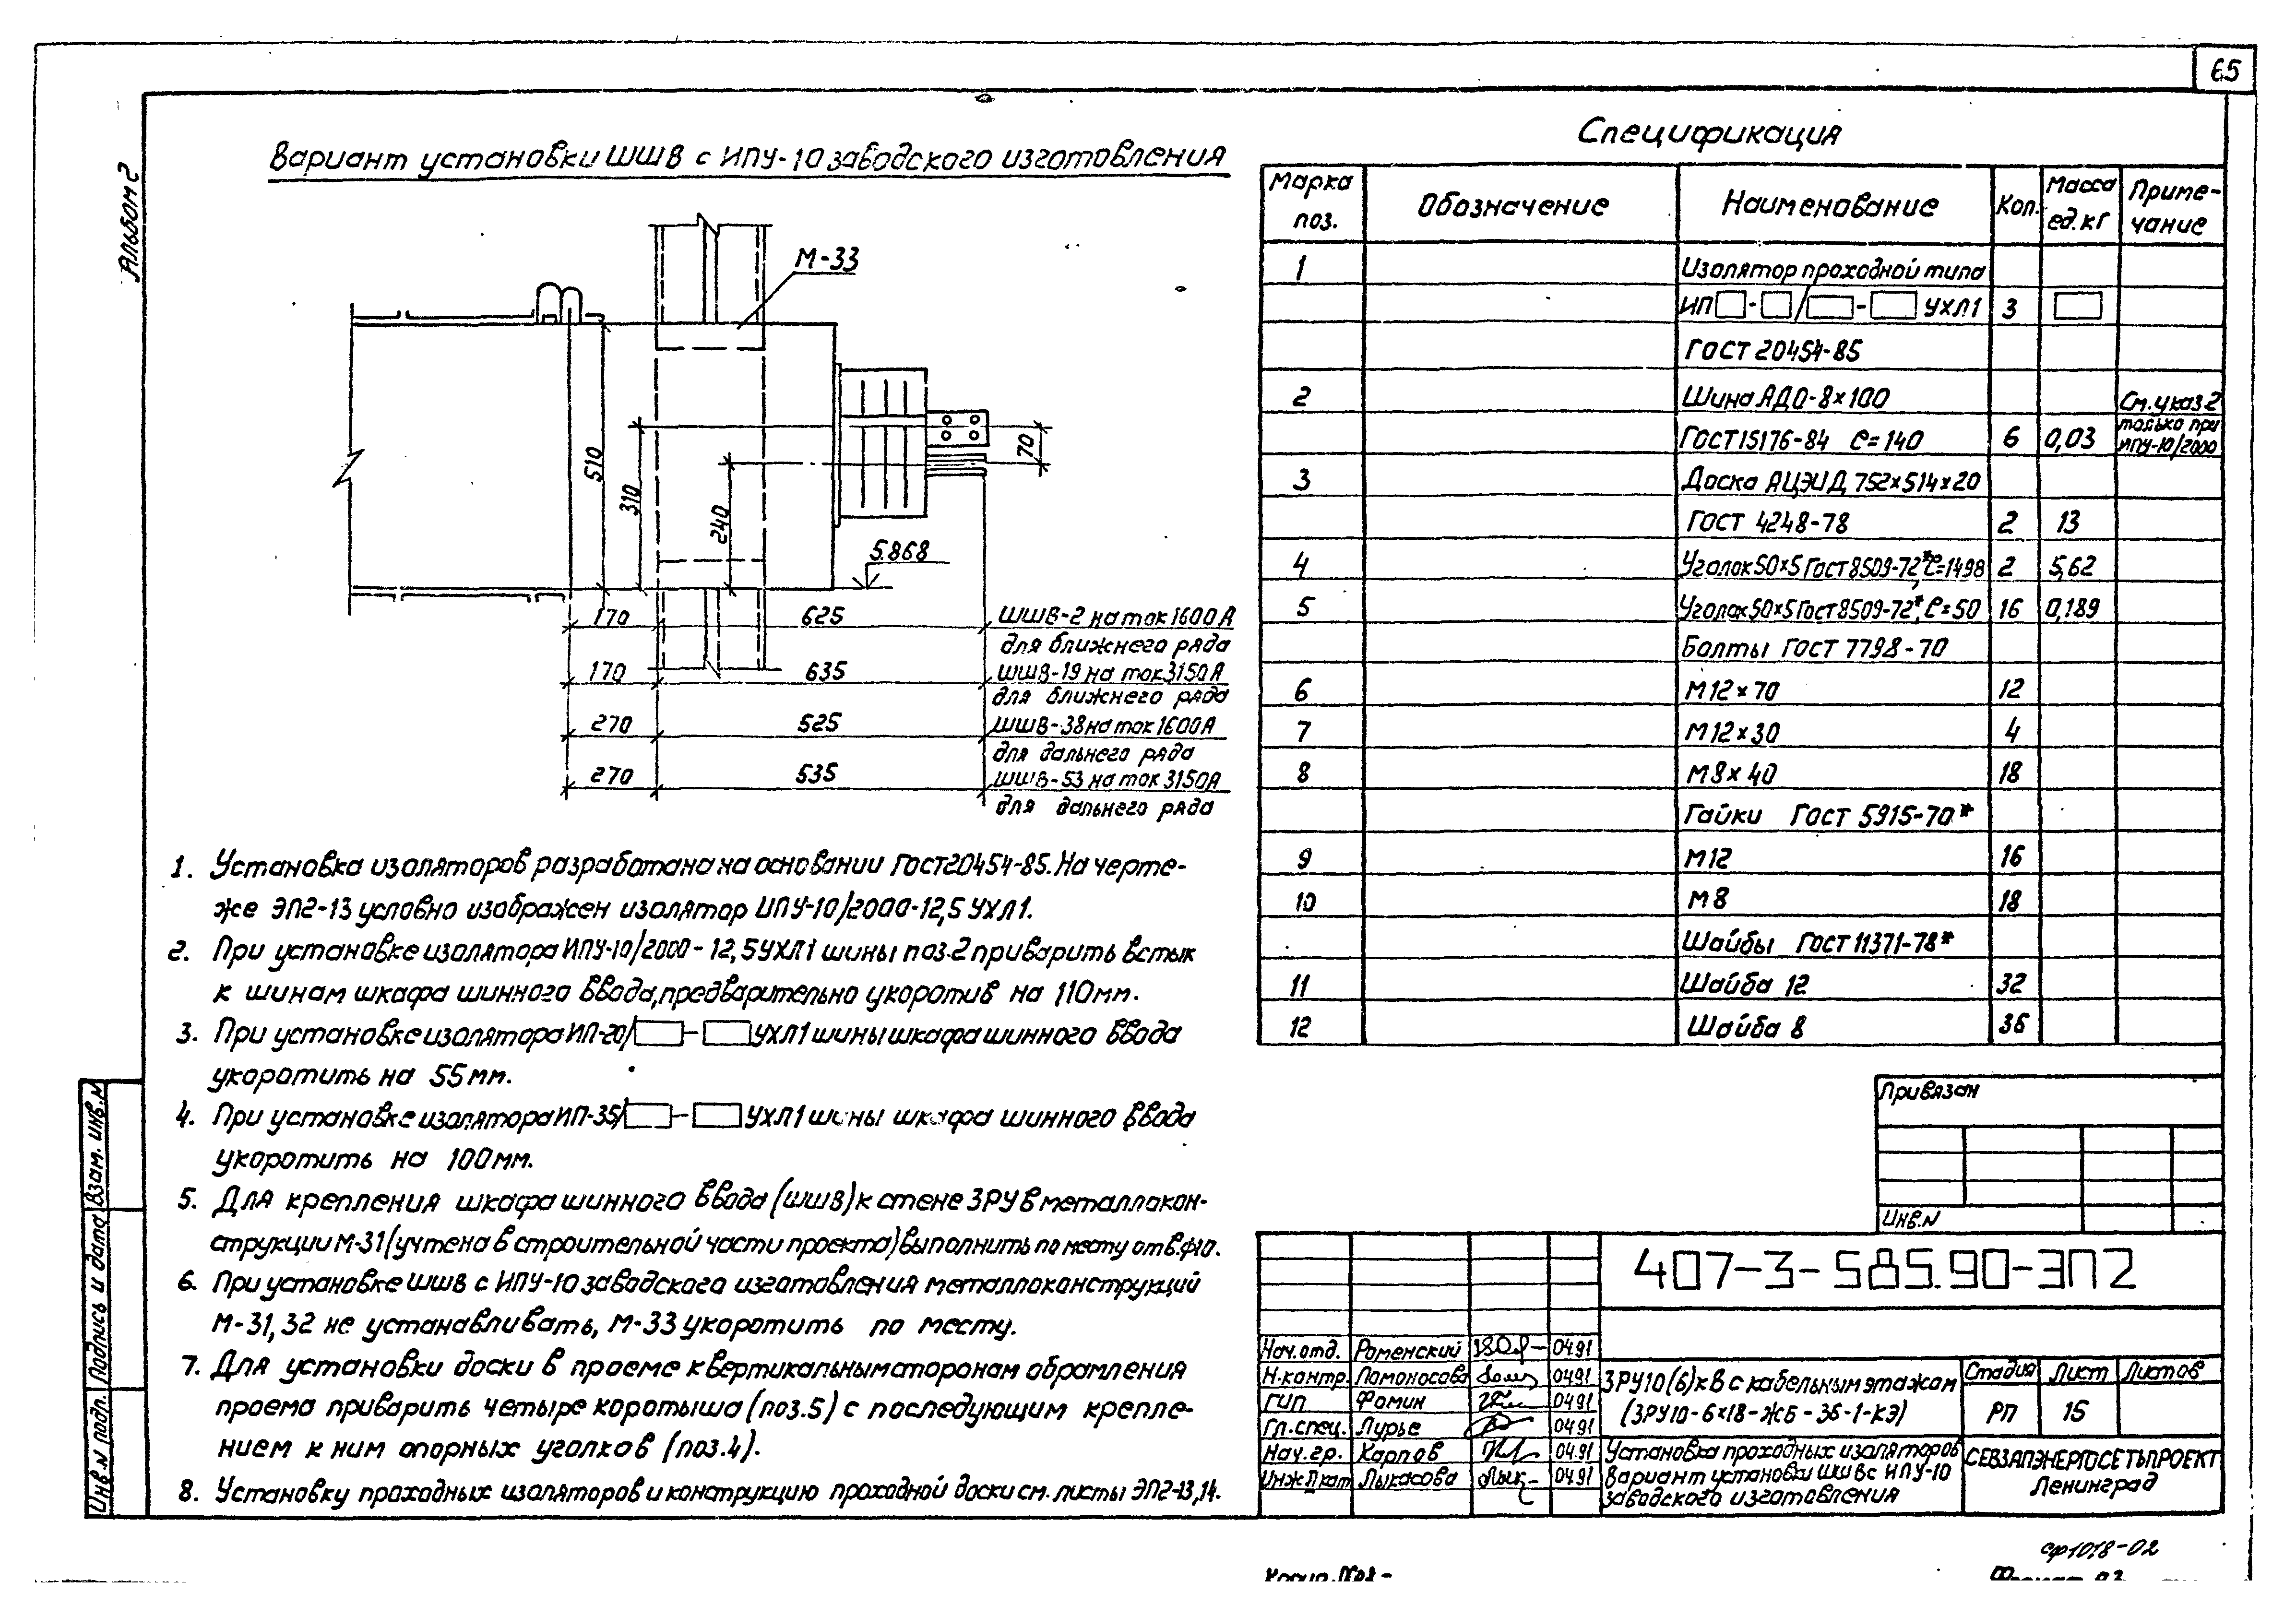 65
Альбом 2
Вариант установки ШШВ с ИПУ-10 заводского изготовления
М-33
510
310
240
70
5.868
170 625 ШШВ-2 на ток 1600А
для ближнего ряда
170 635 ШШВ-19 на ток 3150А
для ближнего ряда
270 525 ШШВ-38 на ток 1600А
для дальнего ряда
270 535 ШШВ-53 на ток 3150А
для дальнего ряда
1. Установка изоляторов разработана на основании ГОСТ 20454-85. На черте-
же ЭП2-13 условно изображен изолятор ИПУ-10/2000-12,5 УХЛ1.
2. При установке изолятора ИПУ-10/2000-12,5УХЛ1 шины поз.2 приварить встык
к шинам шкафа шинного ввода, предварительно укоротив на 110мм.
3. При установке изолятора ИП-20/□-□УХЛ1 шины шкафа шинного ввода
укоротить на 55мм.
4. При установке изолятора ИП-35/□-□УХЛ1 шины шкафа шинного ввода
укоротить на 100мм.
5. Для крепления шкафа шинного ввода (ШШВ) к стене ЗРУ в металлокон-
струкции М-31 (учтена в строительной части проекта) выполнить по месту отв.ф10.
6. При установке ШШВ с ИПУ-10 заводского изготовления металлоконструкций
М-31, 32 не устанавливать, М-33 укоротить по месту.
7. Для установки доски в проеме к вертикальным сторонам обрамления
проема приварить четыре коротыша (поз.5) с последующим крепле-
нием к ним опорных уголков (поз.4).
8. Установку проходных изоляторов и конструкцию проходной доски см. листы ЭП2-13,14.
Спецификация
Марка поз. Обозначение Наименование Кол. Масса ед.кг Приме-чание
1 Изолятор проходной типа
ИП□-□/□-□ УХЛ1 3 □
ГОСТ 20454-85
2 Шина АД0-8×100 См.указ.2
ГОСТ 15176-84 ℓ=140 6 0,03 только при ИПУ-10/2000
3 Доска АЦЭИД 752×514×20
ГОСТ 4248-78 2 13
4 Уголок 50×5 ГОСТ 8509-72*, ℓ=1498 2 5,62
5 Уголок 50×5 ГОСТ 8509-72*, ℓ=50 16 0,189
Болты ГОСТ 7798-70
6 М12×70 12
7 М12×30 4
8 М8×40 18
Гайки ГОСТ 5915-70*
9 М12 16
10 М8 18
Шайбы ГОСТ 11371-78*
11 Шайба 12 32
12 Шайба 8 36
Привязан
Инв.N
407-3-585.90-ЭП2
Нач.отд. Роменский 04.91
Н.контр. Ломоносова 04.91
ГИП Фомин 04.91
Гл.спец. Лурье 04.91
Нач.гр. Карпов 04.91
Инж.II кат. Лыкасова 04.91
ЗРУ10(6)кВ с кабельным этажом
(ЗРУ10-6×18-ЖБ-36-1-КЭ)
Стадия Лист Листов
РП 15
Установка проходных изоляторов
Вариант установки ШШВ с ИПУ-10
заводского изготовления
СЕВЗАПЭНЕРГОСЕТЬПРОЕКТ
Ленинград
Взам. инв.N
Подпись и дата
Инв.N подл.
сф1018-02